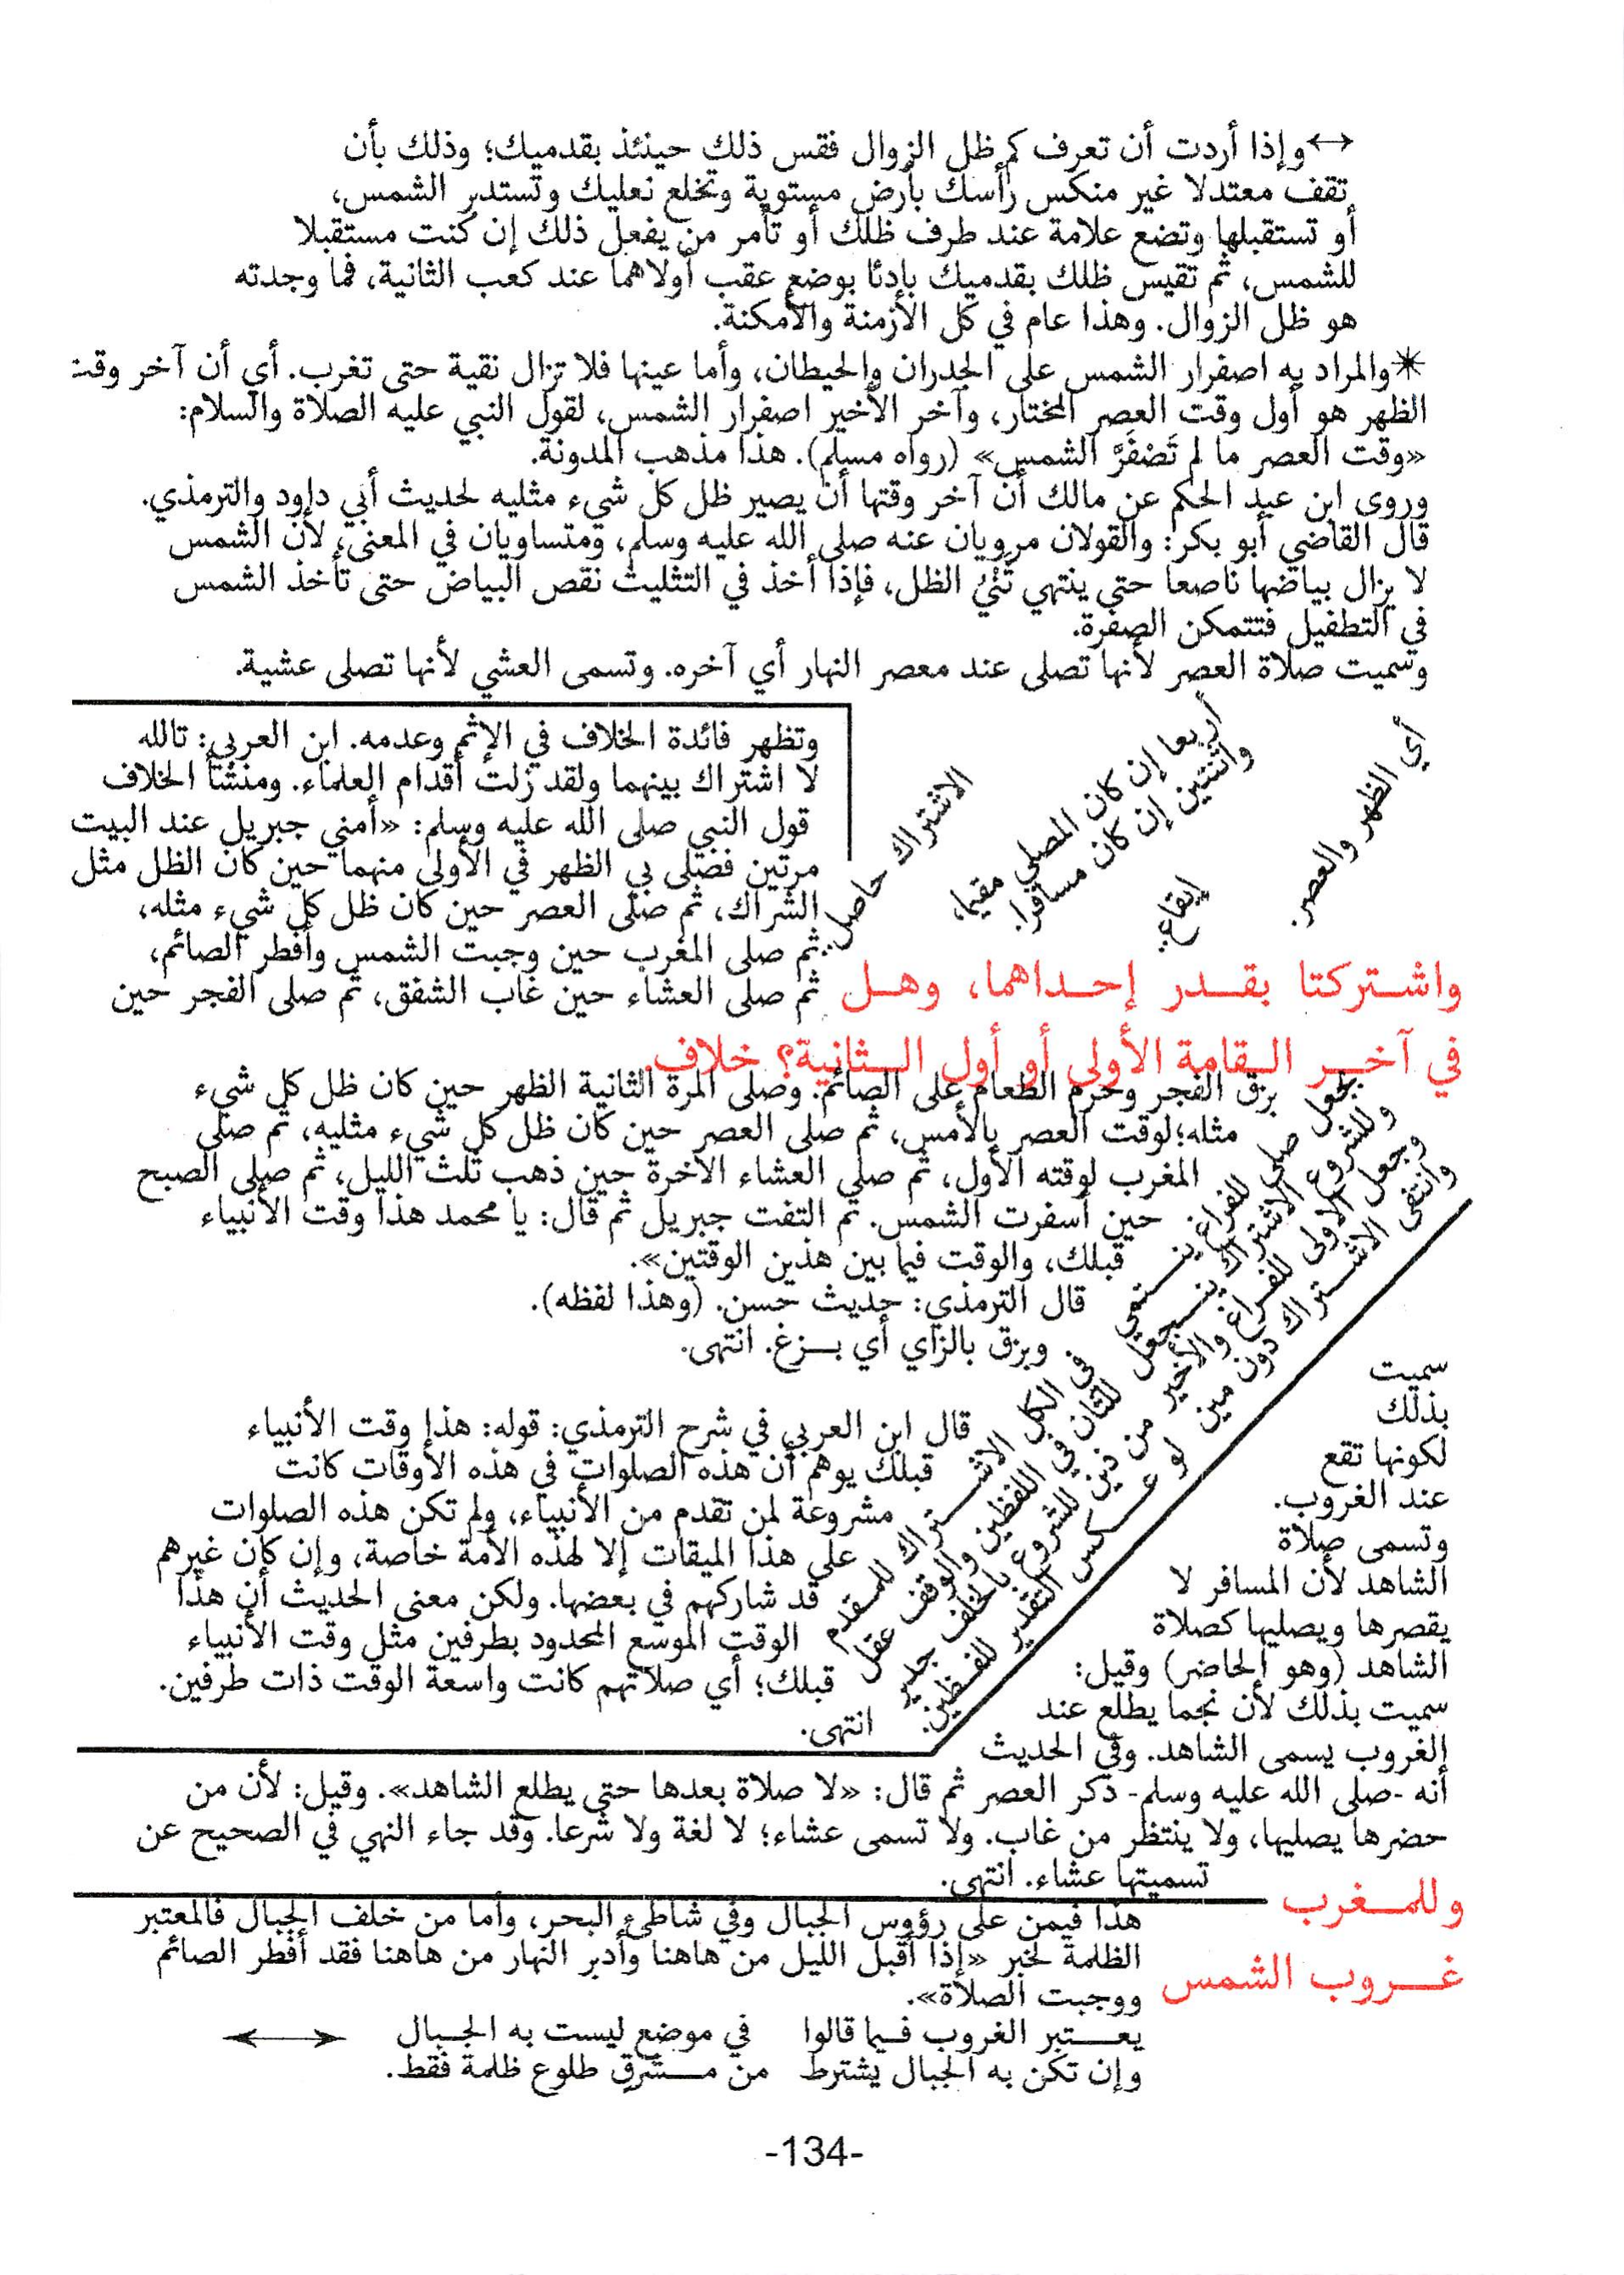 ↔وإذا أردت أن تعرف كم ظل الزوال فقس ذلك حينئذ بقدميك؛ وذلك بأن
تقف معتدلا غير منكس رأسك بأرض مستوية وتخلع نعليك وتستدبر الشمس،
أو تستقبلها وتضع علامة عند طرف ظلك أو تأمر من يفعل ذلك إن كنت مستقبلا
للشمس، ثم تقيس ظلك بقدميك بادئا بوضع عقب أولاهما عند كعب الثانية، فما وجدته
هو ظل الزوال. وهذا عام في كل الأزمنة والأمكنة.
*والمراد به اصفرار الشمس على الجدران والحيطان، وأما عينها فلا تزال نقية حتى تغرب. أي أن آخر وقت
الظهر هو أول وقت العصر المختار، وآخر الأخير اصفرار الشمس، لقول النبي عليه الصلاة والسلام:
«وقت العصر ما لم تَصْفَرَّ الشمس» (رواه مسلم). هذا مذهب المدونة.
وروى ابن عبد الحكم عن مالك أن آخر وقتها أن يصير ظل كل شيء مثليه لحديث أبي داود والترمذي.
قال القاضي أبو بكر: والقولان مرويان عنه صلى الله عليه وسلم، ومتساويان في المعنى، لأن الشمس
لا يزال بياضها ناصعا حتى ينتهي ثَنْيُ الظل، فإذا أخذ في التثليث نقص البياض حتى تأخذ الشمس
في التطفيل فتتمكن الصفرة.
وسميت صلاة العصر لأنها تصلى عند معصر النهار أي آخره. وتسمى العشي لأنها تصلى عشية.
أي الظهر والعصر.
إيقاع.
أربعا إن كان المصلي مقيما،
واثنتين إن كان مسافرا.
الاشتراك حاصل.
واشتركتا بقدر إحداهما، وهل
في آخر القامة الأولى أو أول الثانية؟ خلاف.
وتظهر فائدة الخلاف في الإثم وعدمه. ابن العربي: تالله
لا اشتراك بينهما ولقد زلت أقدام العلماء. ومنشأ الخلاف
قول النبي صلى الله عليه وسلم: «أمني جبريل عند البيت
مرتين فصلى بي الظهر في الأولى منهما حين كان الظل مثل
الشراك، ثم صلى العصر حين كان ظل كل شيء مثله،
ثم صلى المغرب حين وجبت الشمس وأفطر الصائم،
ثم صلى العشاء حين غاب الشفق، ثم صلى الفجر حين
بزق الفجر وحرم الطعام على الصائم. وصلى المرة الثانية الظهر حين كان ظل كل شيء
مثله؛لوقت العصر بالأمس، ثم صلى العصر حين كان ظل كل شيء مثليه، ثم صلى
المغرب لوقته الأول، ثم صلى العشاء الآخرة حين ذهب ثلث الليل، ثم صلى الصبح
حين أسفرت الشمس. ثم التفت جبريل ثم قال: يا محمد هذا وقت الأنبياء
قبلك، والوقت فيما بين هذين الوقتين».
قال الترمذي: حديث حسن. (وهذا لفظه).
وبزق بالزاي أي بزغ. انتهى.
قال ابن العربي في شرح الترمذي: قوله: هذا وقت الأنبياء
قبلك يوهم أن هذه الصلوات في هذه الأوقات كانت
مشروعة لمن تقدم من الأنبياء، ولم تكن هذه الصلوات
على هذا الميقات إلا لهذه الأمة خاصة، وإن كان غيرهم
قد شاركهم في بعضها. ولكن معنى الحديث أن هذا
الوقت الموسع المحدود بطرفين مثل وقت الأنبياء
قبلك؛ أي صلاتهم كانت واسعة الوقت ذات طرفين.
انتهى.
بجعل صلى للفراغ ينتمي في الكل الاشتراك للمقدم
وللشروع الاشتراك ينجعل للثان في اللفظين والوقف عقل
وجعل الأولى للفراغ والأخير من ذين للشروع بالخلف جدير
وانتفى الاشتراك دون مين لو عكس التقدير للفظين.
سميت
بذلك
لكونها تقع
عند الغروب.
وتسمى صلاة
الشاهد لأن المسافر لا
يقصرها ويصليها كصلاة
الشاهد (وهو الحاضر) وقيل:
سميت بذلك لأن نجما يطلع عند
الغروب يسمى الشاهد. وفي الحديث
أنه -صلى الله عليه وسلم- ذكر العصر ثم قال: «لا صلاة بعدها حتى يطلع الشاهد». وقيل: لأن من
حضرها يصليها، ولا ينتظر من غاب. ولا تسمى عشاء؛ لا لغة ولا شرعا. وقد جاء النهي في الصحيح عن
تسميتها عشاء. انتهى.
وللمغرب
غروب الشمس
هذا فيمن على رؤوس الجبال وفي شاطئ البحر، وأما من خلف الجبال فالمعتبر
الظلمة لخبر «إذا أقبل الليل من هاهنا وأدبر النهار من هاهنا فقد أفطر الصائم
ووجبت الصلاة».
يعتبر الغروب فيما قالوا في موضع ليست به الجبال ↔
وإن تكن به الجبال يشترط من مشرق طلوع ظلمة فقط.
-134-